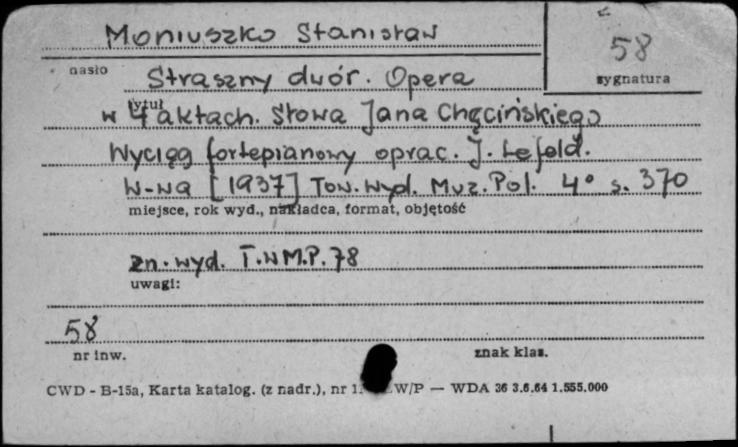 Moniuszko Stanisław
58
hasło
sygnatura
Straszny dwór. Opera
tytuł
w 4 aktach. Słowa Jana Chęcińskiego
Wyciąg fortepianowy oprac. J. Lefeld.
W-wa [1937] Tow. Wyd. Muz. Pol. 4° s. 370
miejsce, rok wyd., nakładca, format, objętość
zn. wyd. T.W.M.P. 78
uwagi:
58
nr inw.
znak klas.
CWD - B-15a, Karta katalog. (z nadr.), nr W/P — WDA 36 3.6.64 1.555.000